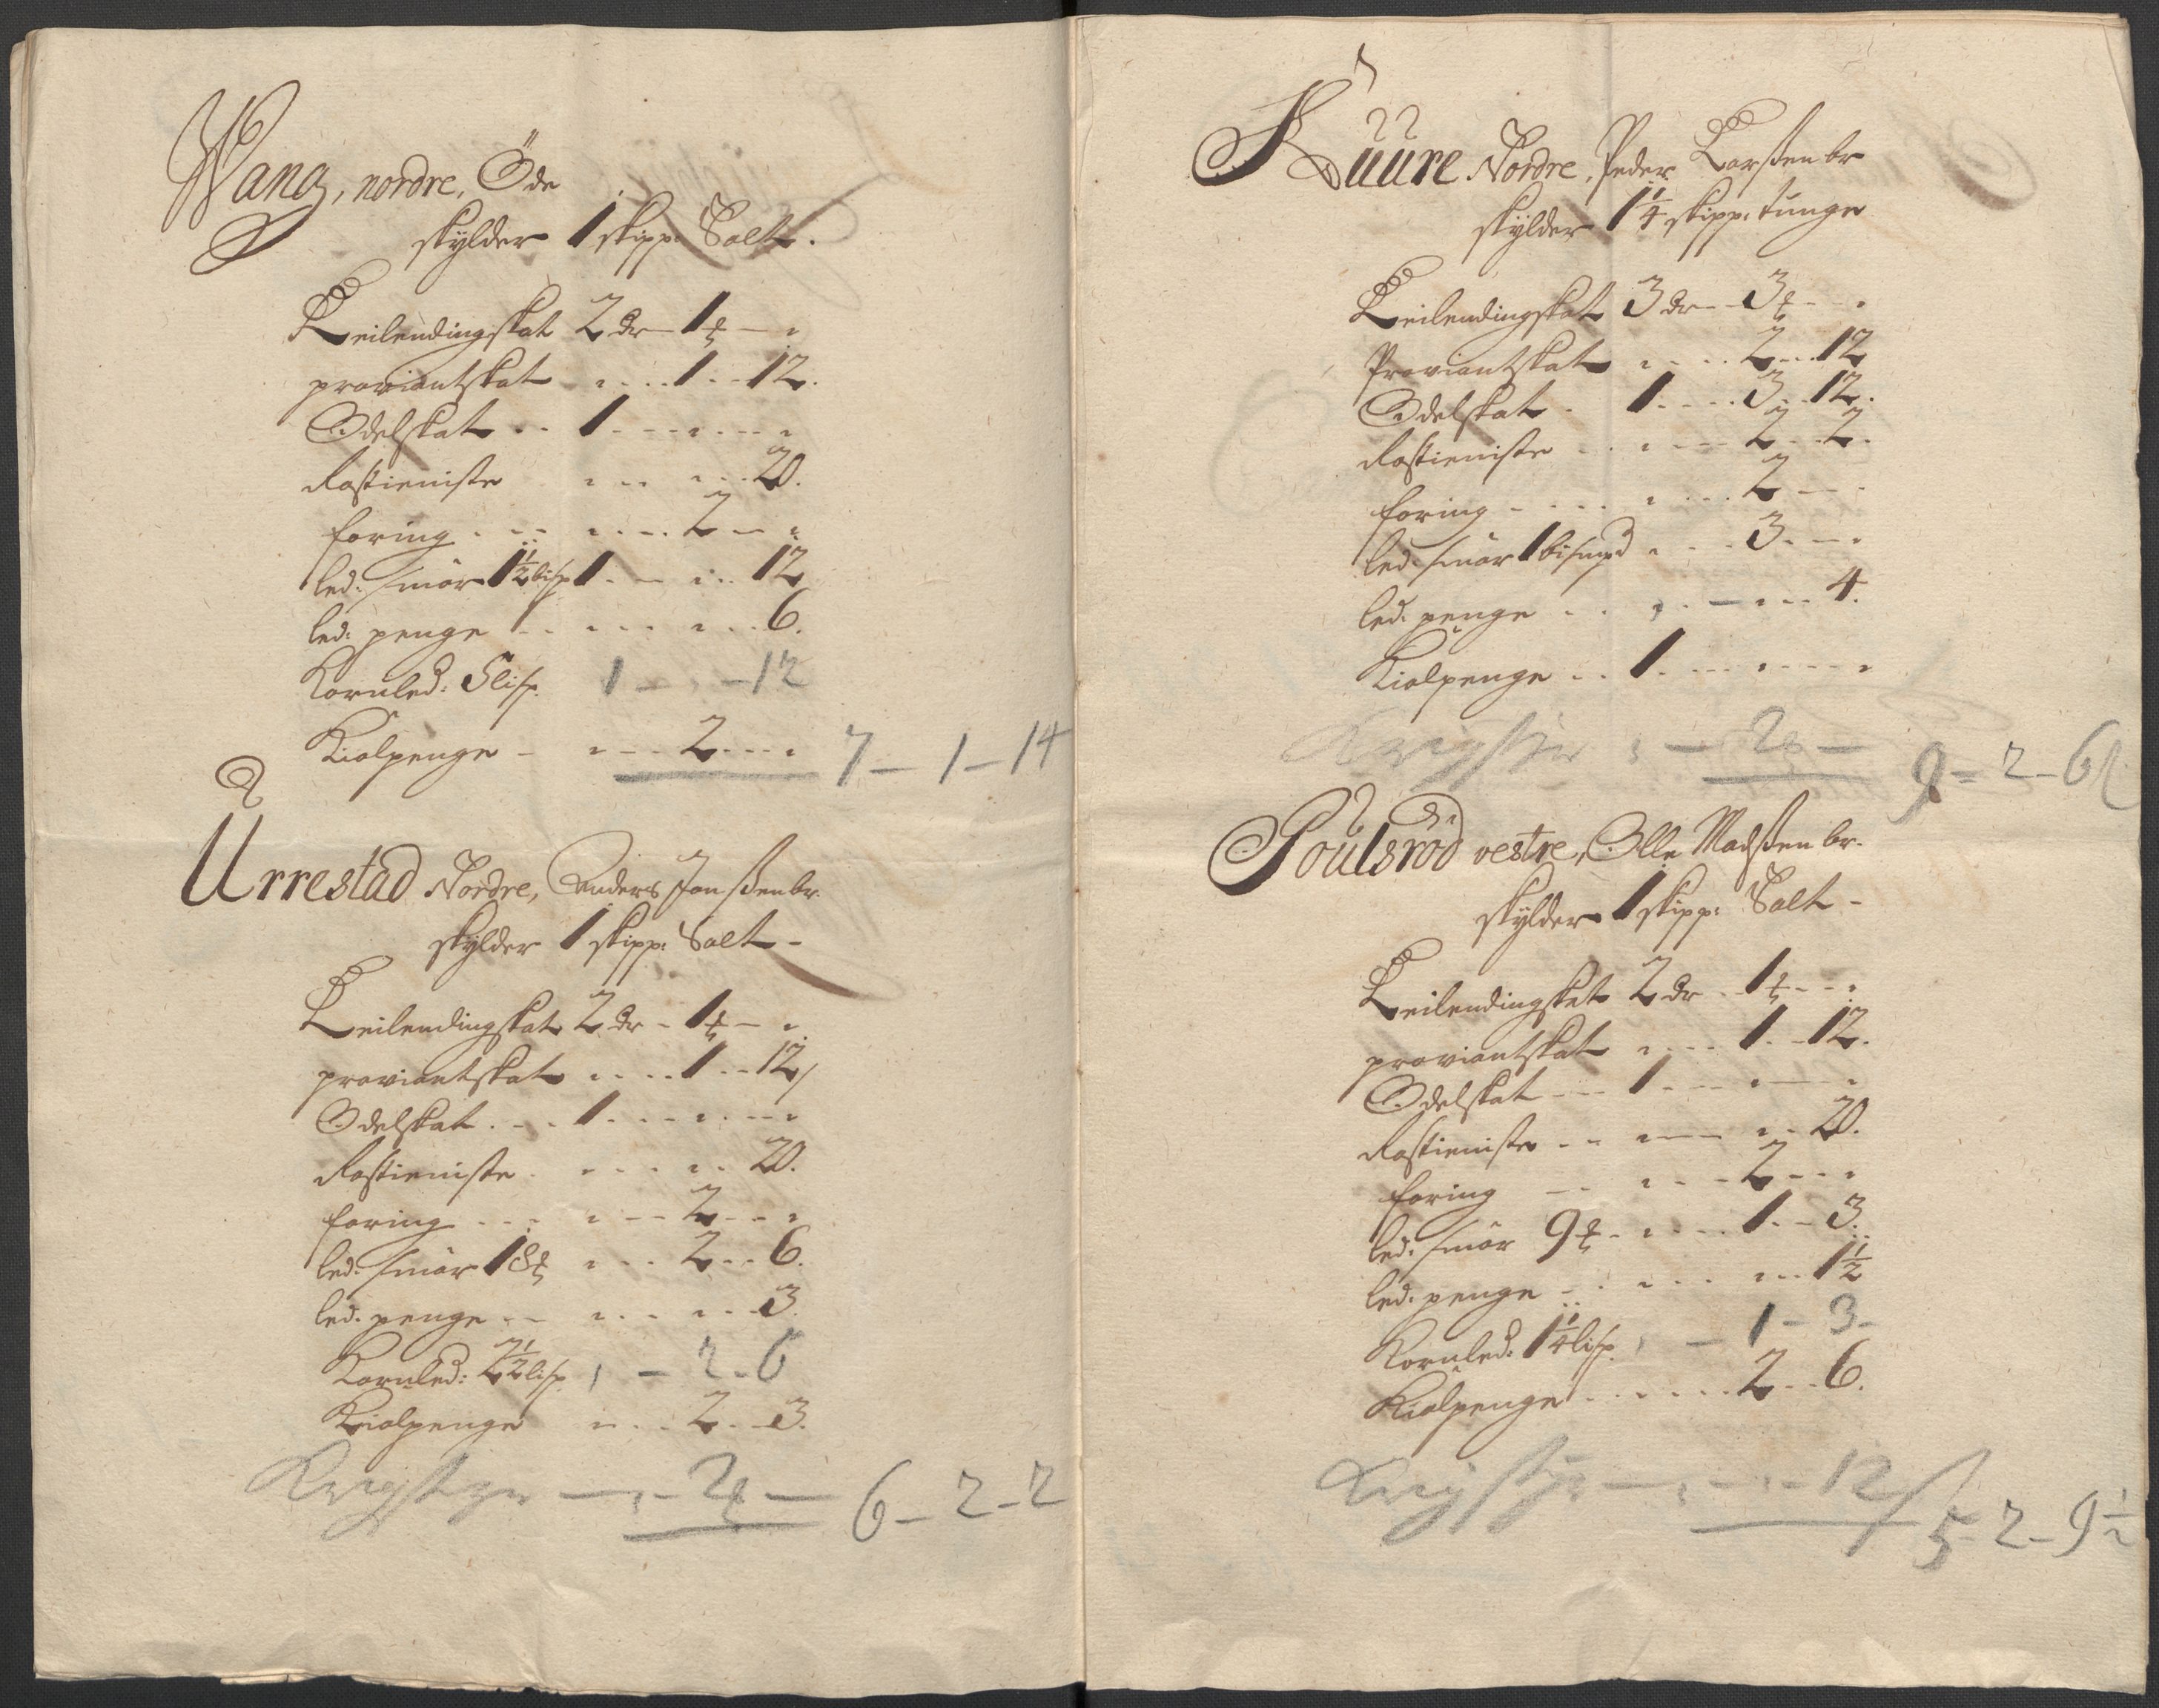 Wang, nordre, Öde
skylder 1 skipp: Salt.
Leilendingskat 2 dr - 1 ȶ - "
proviantskat " - 1 - 12.
Odelskat - 1 - " - "
Rostieniste " - " - 20.
foring - " - 2 - "
led: smör 1½ lisp 1 - " - 12
led: penge - " - " - 6.
Kornled: 5 lisp. 1 - " - 12
Kiolpenge - " - 2 - " 7 - 1 - 14
Urrestad Nordre, Anders Jonssen br.
skylder 1 skipp: Salt -
Leilendingskat 2 dr - 1 ȶ - "
proviantskat " - 1 - 12
Odelskat - 1 - " - "
Rostieniste " - " - 20.
foring - " - 2 - "
led: smör 18 ȶ " - 2 - 6.
led: penge - " - " - 3.
Kornled: 2½ lisp. " - 2 - 6
Kiolpenge " - 2 - 3.
Krigstyr - " - 2 ȶ - 6 - 2 - 2
Kuure Nordre, Peder Larssen br
skylder 1¼ skipp: tunge
Leilendingskat 3 dr - 3 ȶ - "
Proviantskat " - 2 - 12
Odelskat - 1 - 3 - 12.
Rostieniste - " - 2 - 2.
foring - " - 2 - "
led: smör 1 bismpd " - 3 - "
led: penge - " - " - 4.
Kiolpenge - 1 - " - "
Krigstyr " - 2 ȶ - 9 - 2 - 6
Poulsröd vestre, Olle Madssen br.
skylder 1 skipp: Salt -
Leilendingskat 2 dr - 1 ȶ - "
proviantskat " - 1 - 12.
Odelskat - 1 - " - "
Rostieniste - " - " - 20.
foring - " - 2 - "
led: smör 9 ȶ - " - 1 - 3.
led: penge - " - " - 1½
Kornled: 1¼ lisp. " - 1 - 3 -
Kiolpenge - " - 2 - 6.
Krigstyr - " - " - 12 5 - 2 - 9½